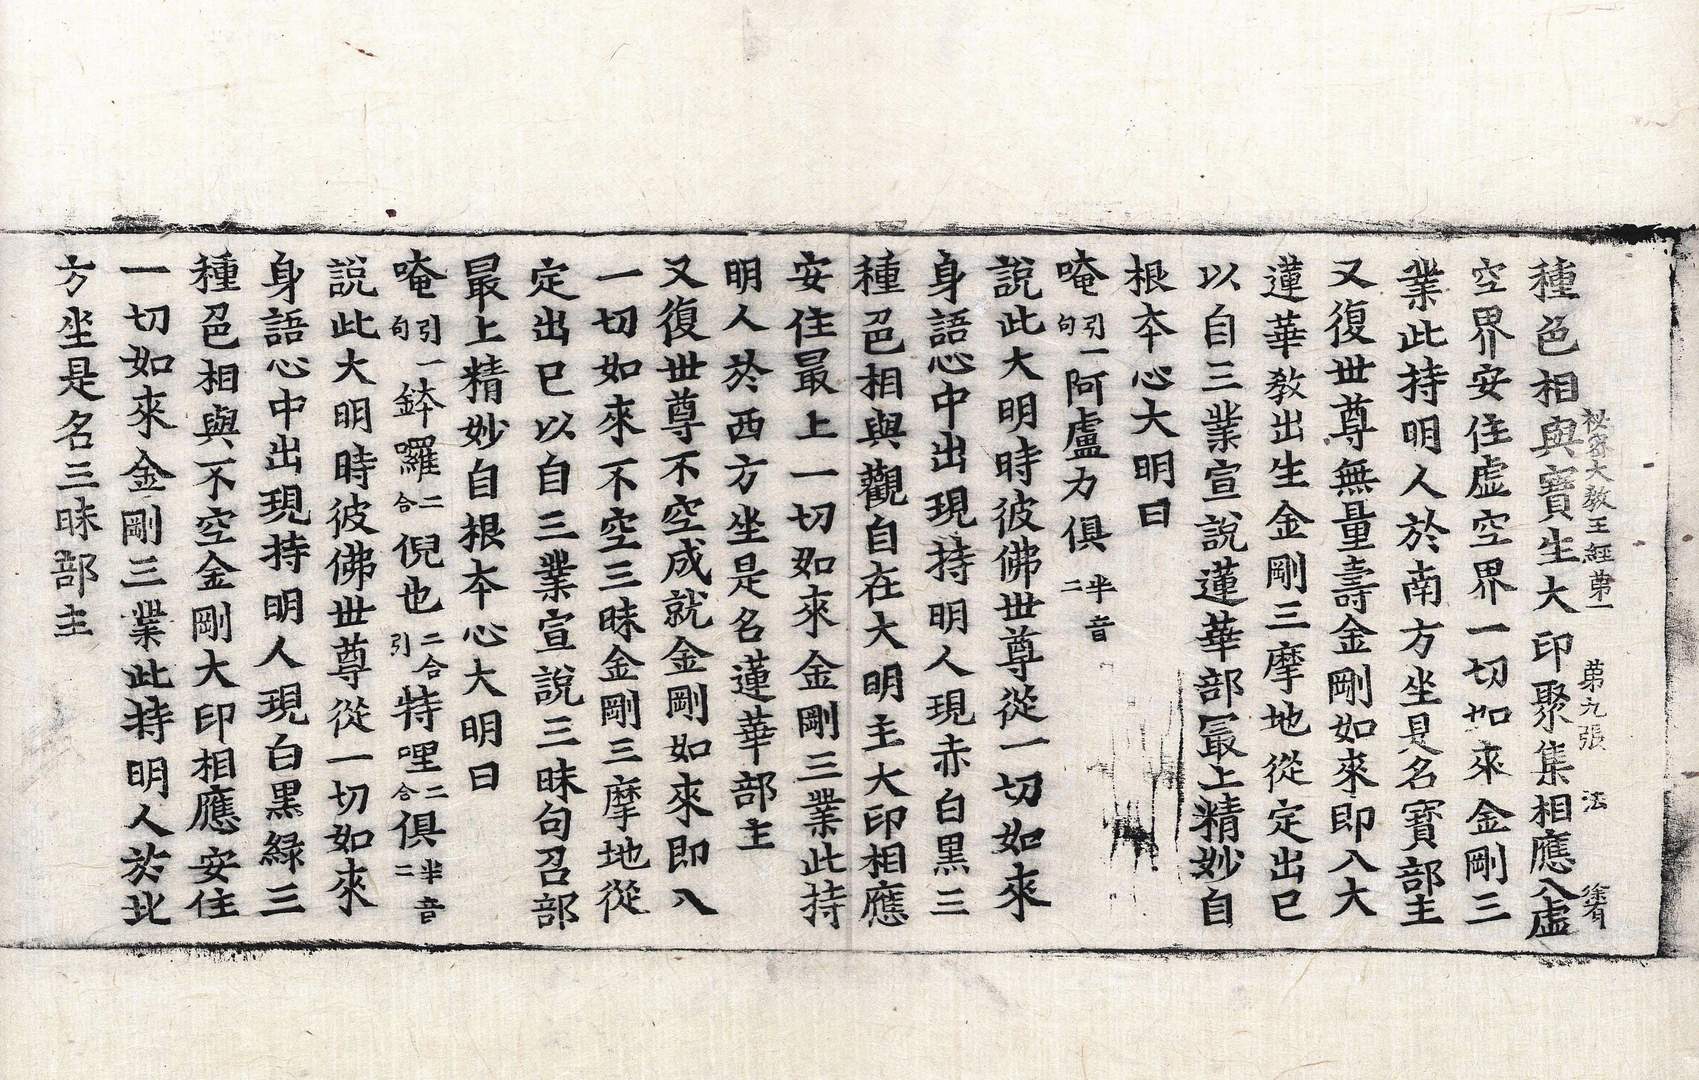 祕密大教王經第一　第九張　法　徐有
種色相與寶生大印聚集相應入虛
空界安住虛空界一切如來金剛三
業此持明人於南方坐是名寶部主
又復世尊無量壽金剛如來即入大
蓮華教出生金剛三摩地從定出已
以自三業宣說蓮華部最上精妙自
根本心大明曰
唵引一句阿盧力俱半音二
說此大明時彼佛世尊從一切如來
身語心中出現持明人現赤白黑三
種色相與觀自在大明主大印相應
安住最上一切如來金剛三業此持
明人於西方坐是名蓮華部主
又復世尊不空成就金剛如來即入
一切如來不空三昧金剛三摩地從
定出已以自三業宣說三昧句召部
最上精妙自根本心大明曰
唵引一句鉢囉二合倪也二合引特哩二合俱半音二
說此大明時彼佛世尊從一切如來
身語心中出現持明人現白黑綠三
種色相與不空金剛大印相應安住
一切如來金剛三業此持明人於北
方坐是名三昧部主